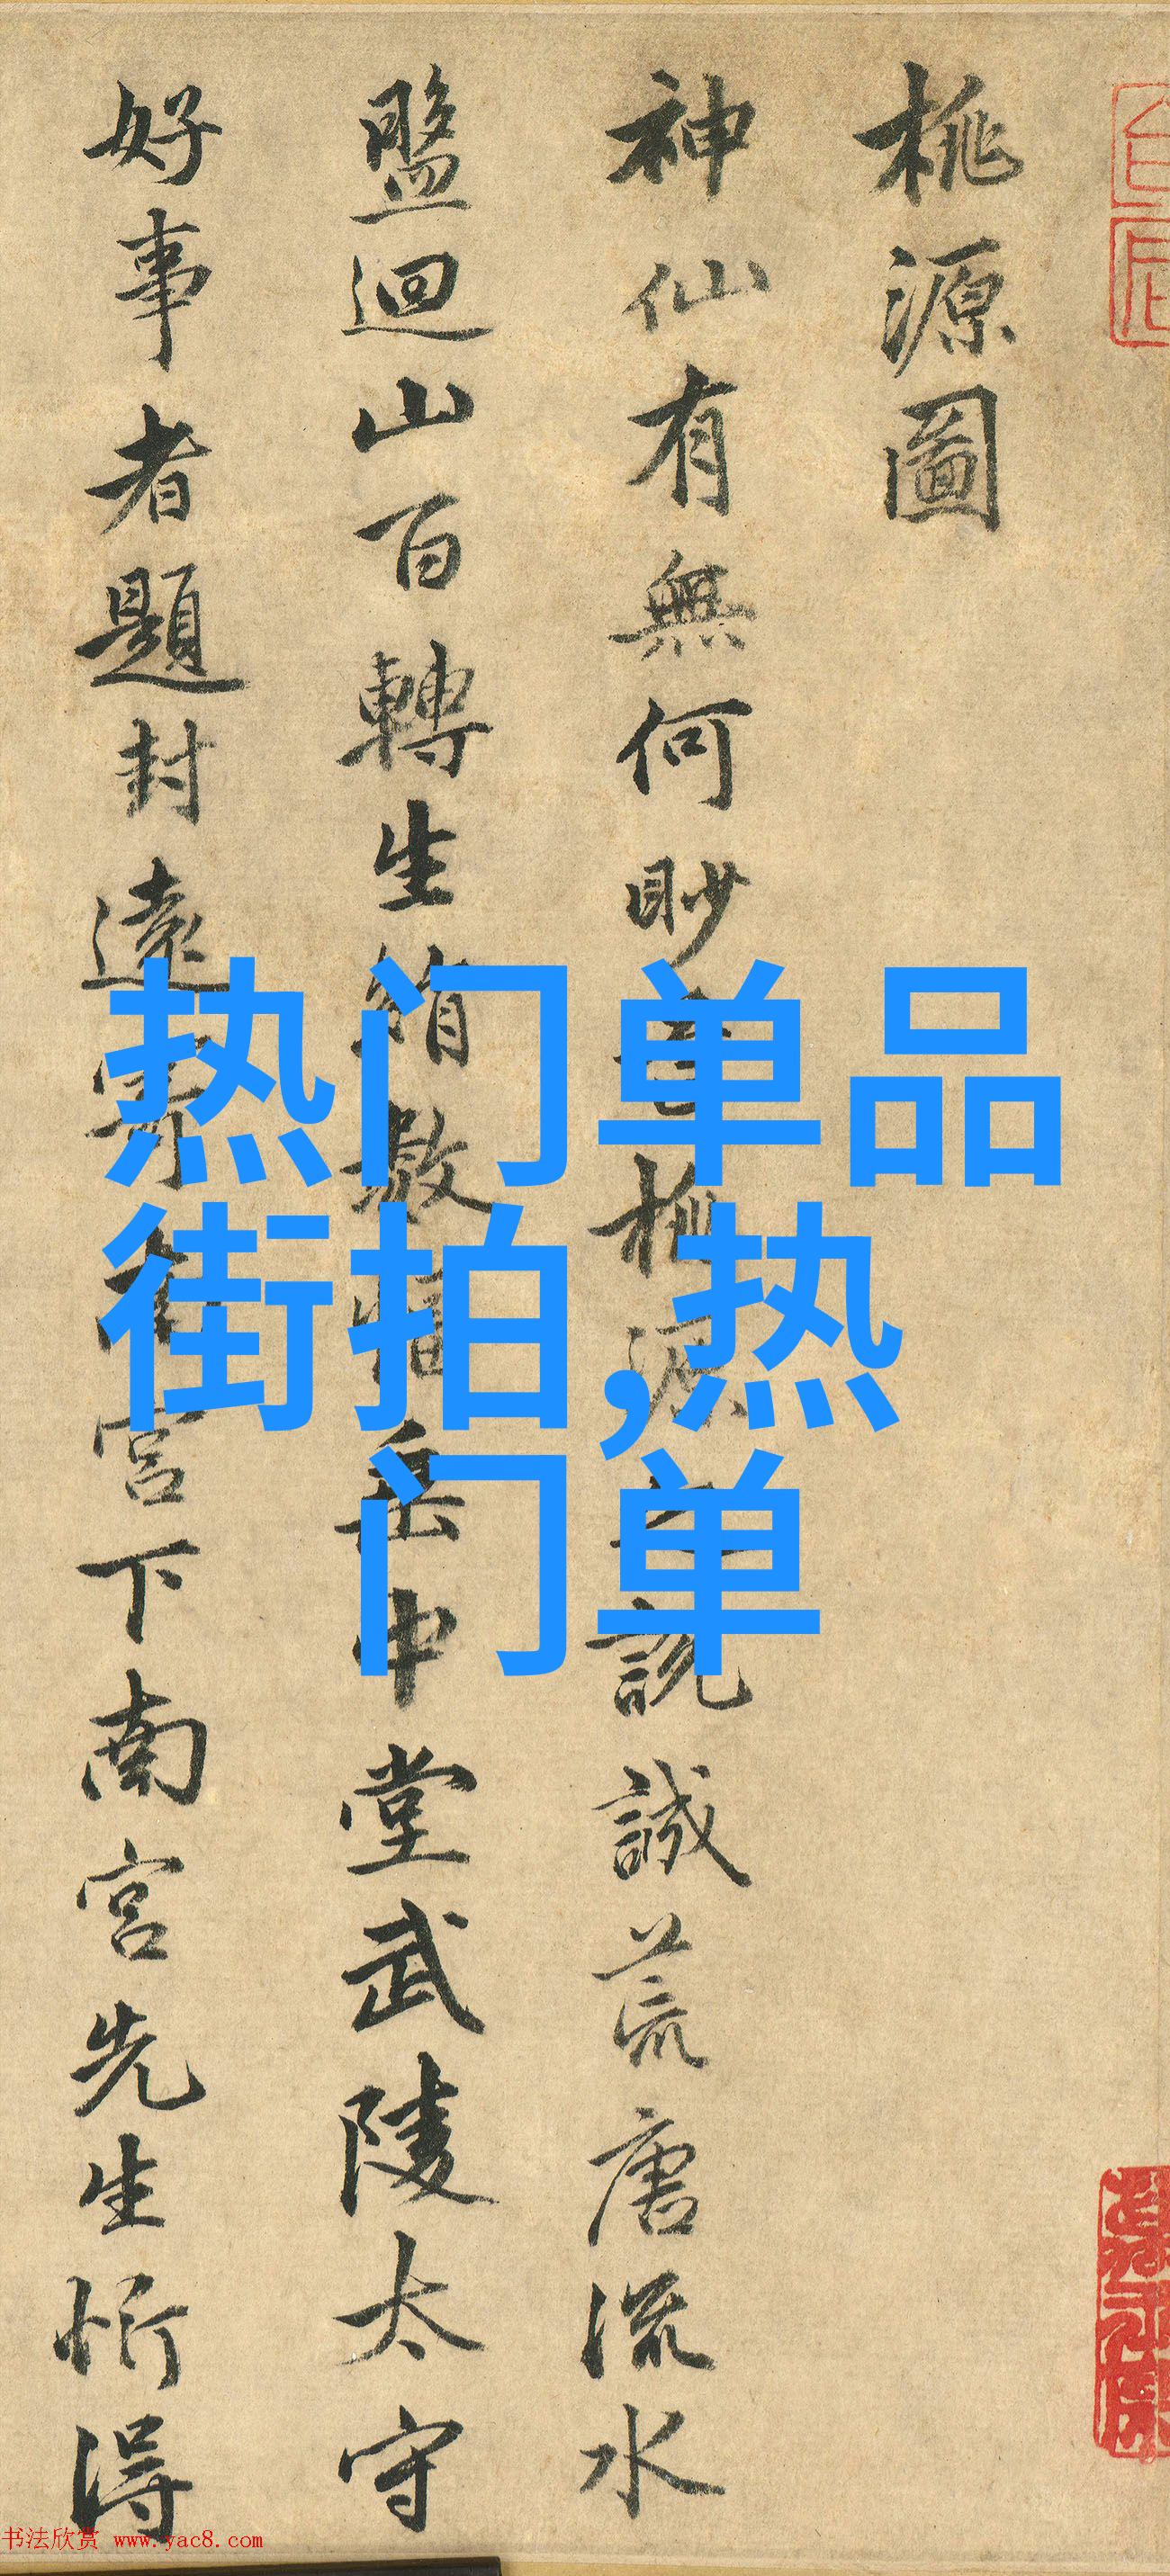 桃源圖
神仙有無何眇芒桃源之説誠荒唐流水
盤迴山百轉生綃數幅垂中堂武陵太守
好事者題封遠寄南宮下南宮先生忻得
热门单品
街拍,热
门单
书法欣赏 www.yac8.com